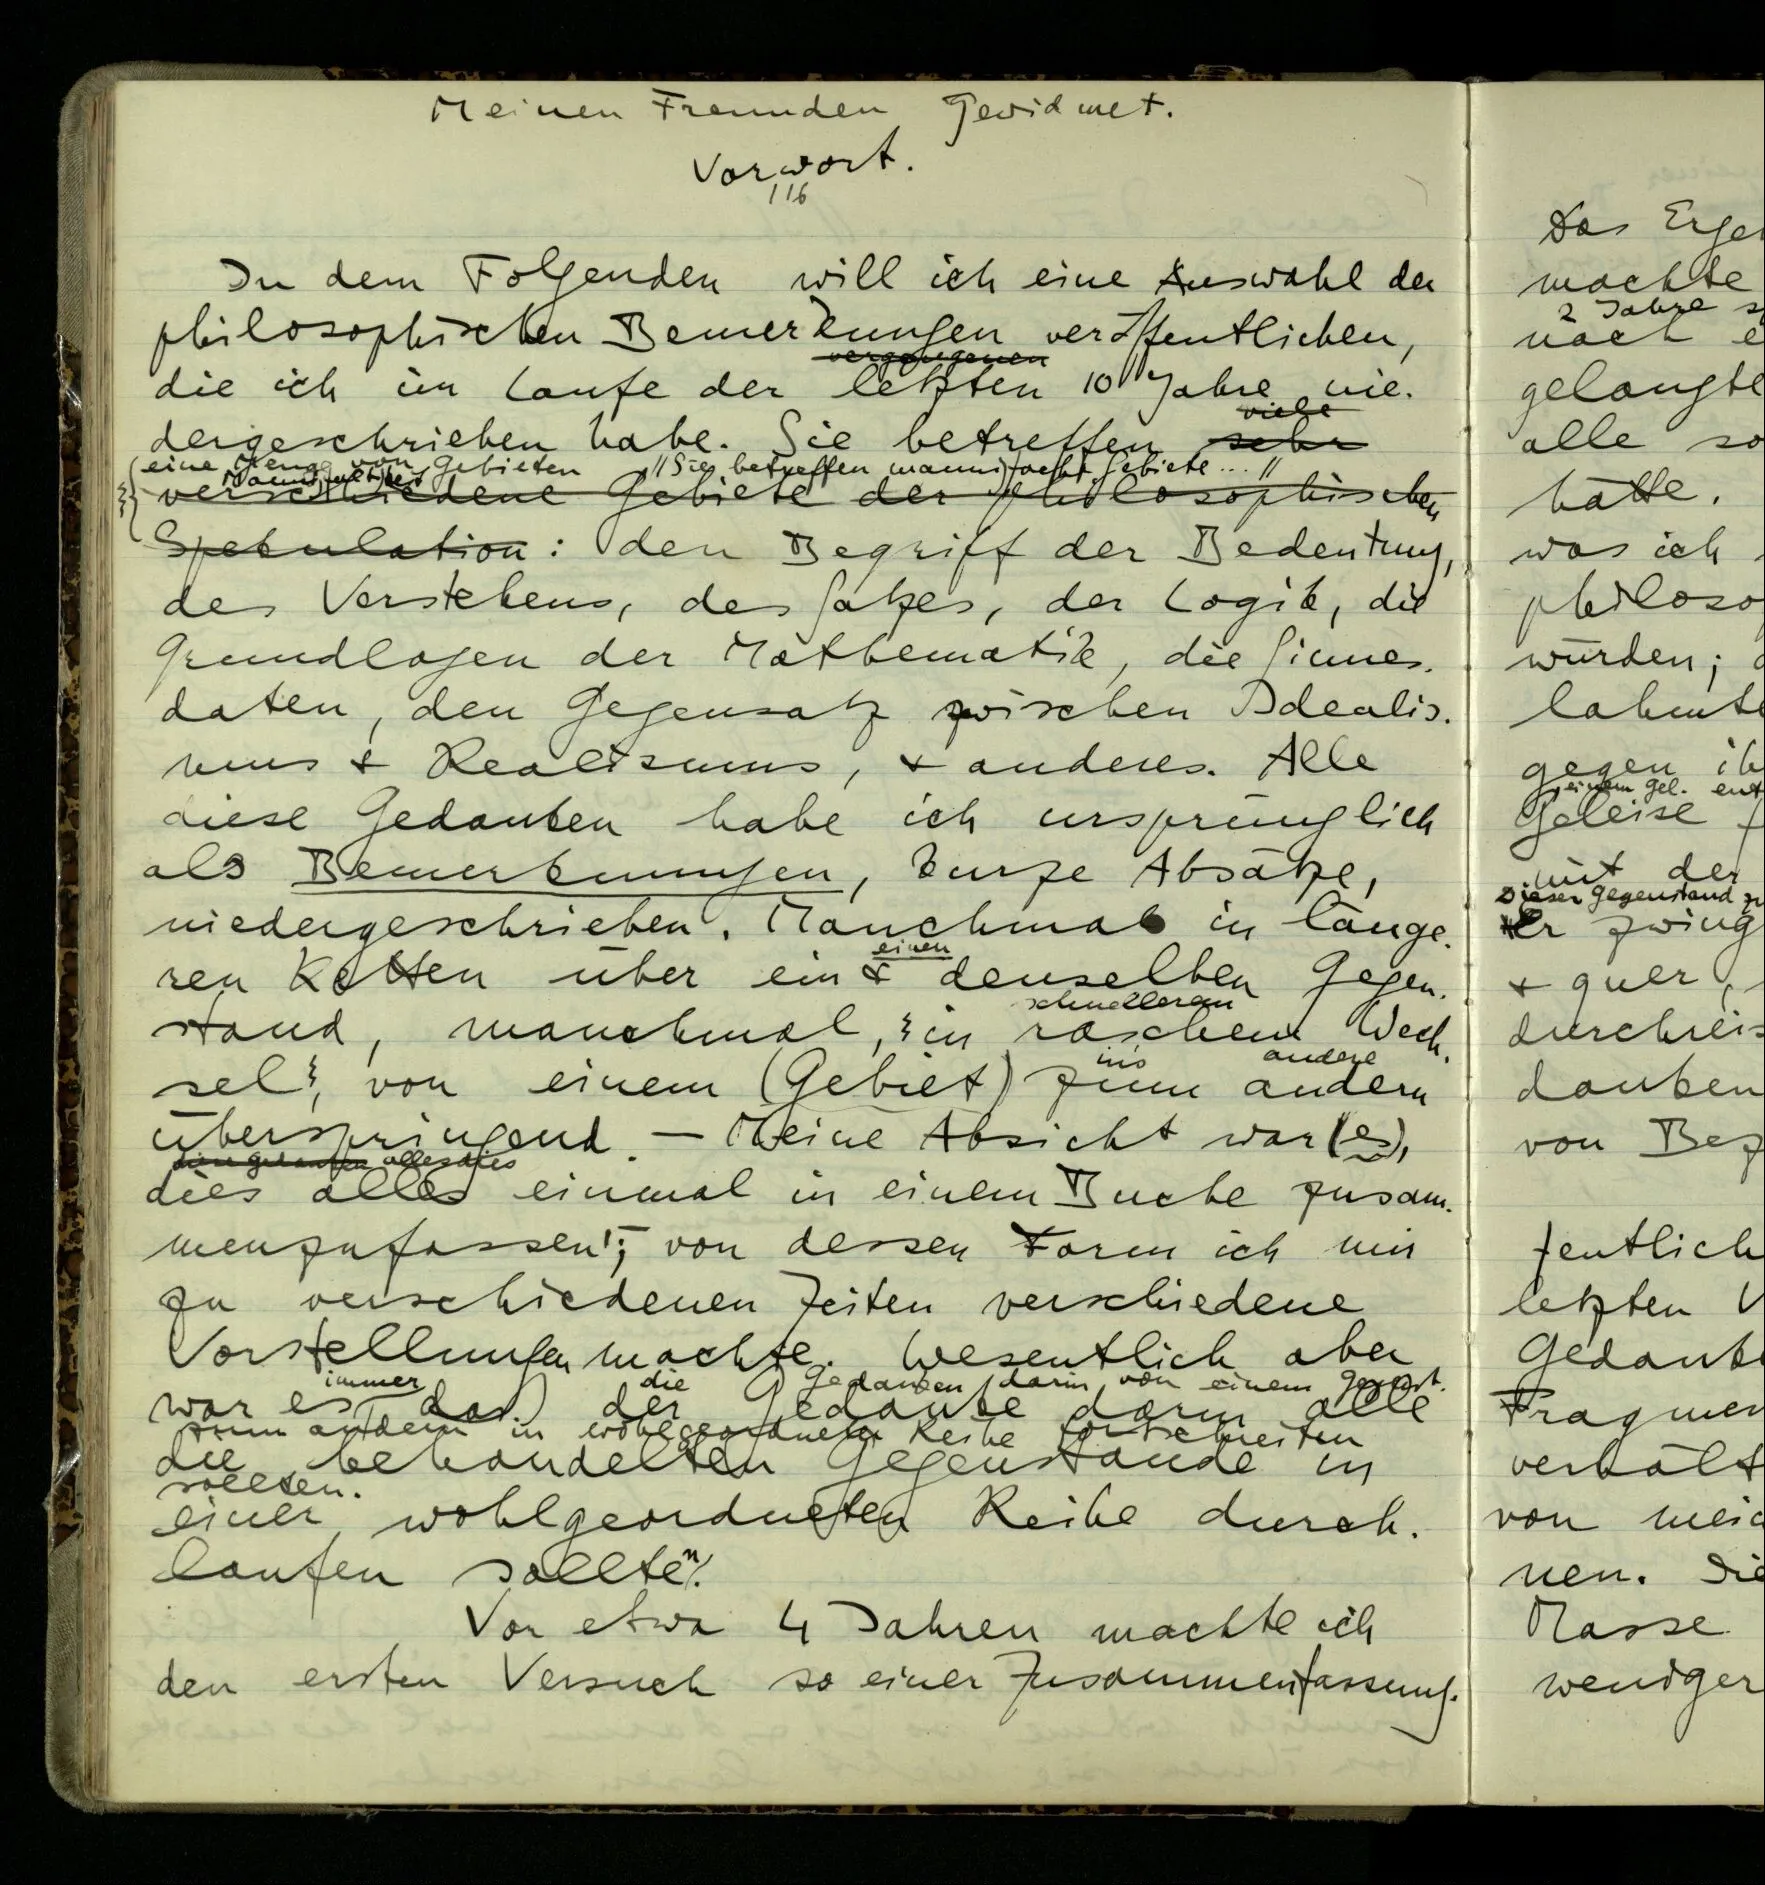 Meinen Freunden Gewidmet.
Vorwort.
116
In dem Folgenden will ich eine Auswahl der
philosophischen Bemerkungen veröffentlichen,
vergangenen
die ich im Laufe der letzten 10 Jahre nie-
viele
dergeschrieben habe. Sie betreffen sehr
eine Menge von Gebieten //Sie betreffen mannigfache Gebiete ... //
verschiedene Gebiete der philosophischen
Spekulation: den Begriff der Bedeutung,
des Verstehens, des Satzes, der Logik, die
Grundlagen der Mathematik, die Sinnes-
daten, den Gegensatz zwischen Idealis-
mus & Realismus, & anderes. Alle
diese Gedanken habe ich ursprünglich
als Bemerkungen, kurze Absätze,
niedergeschrieben. Manchmal in länge-
einen
ren Ketten über ein & denselben Gegen-
schnelleren
stand, manchmal, in raschem Wech-
ins andere
sel, von einem (Gebiet) zum andern
überspringend. — Meine Absicht war (es),
diese Gedanken alles dies
dies alles einmal in einem Buche zusam-
menzufassen; von dessen Form ich mir
zu verschiedenen Zeiten verschiedene
Vorstellungen machte. Wesentlich aber
immer die Gedanken darin von einem Gegenst.
war es das) der Gedanke darin alle
zum andern in wohlgeordneter Reihe fortschreiten
die behandelten Gegenstände in
sollten.
einer wohlgeordneten Reihe durch-
laufen sollte n.
Vor etwa 4 Jahren machte ich
den ersten Versuch so einer Zusammenfassung.
Das Erge
machte
2 Jahre s
noch e
gelangte
alle so
hätte.
was ich
philoso
würden; d
lahmte
gegen ih
einem Gel. ent
Geleise f
mit der
Dieser Gegenstand zw
Er zwing
& quer,
durchreis
danken
von Bez
fentlich
letzten V
Gedanke
Fragmen
verhält
von mei
nen. Die
Masse
weniger